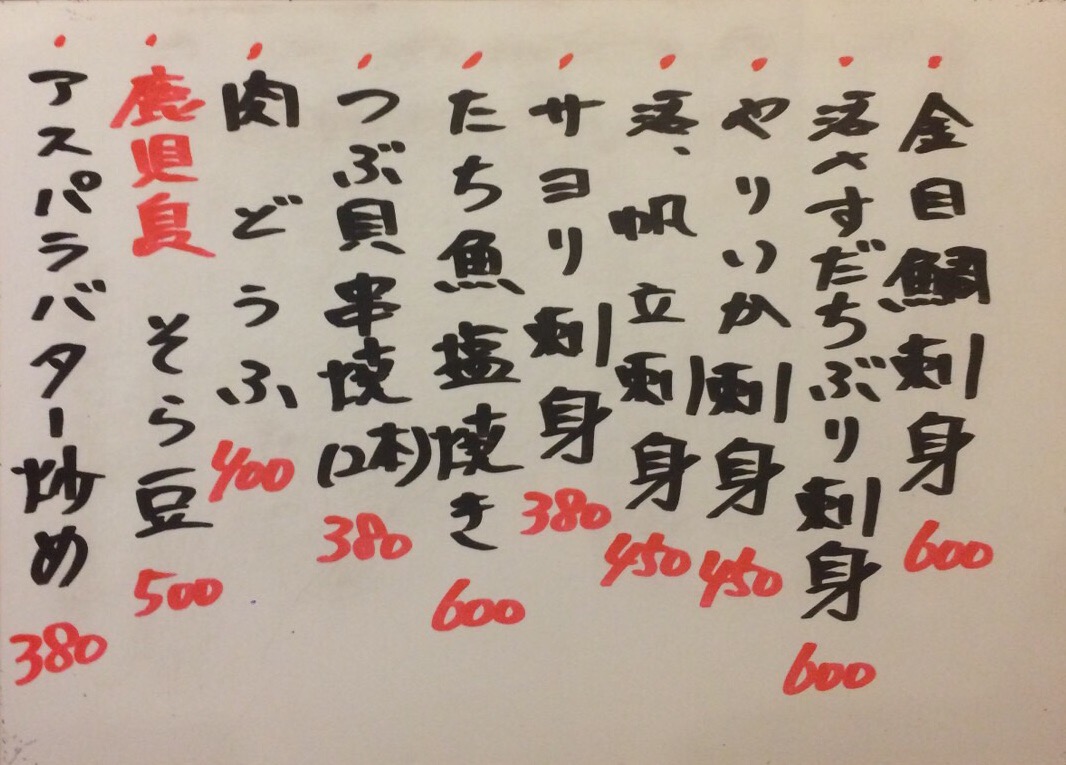 ・金目鯛刺身 600
・活〆すだちぶり刺身 600
・やりいか刺身 450
・活、帆立刺身 450
・サヨリ刺身 380
・たち魚塩焼き 600
・つぶ貝串焼(2本) 380
・肉どうふ 400
・鹿児島 そら豆 500
・アスパラバター炒め 380